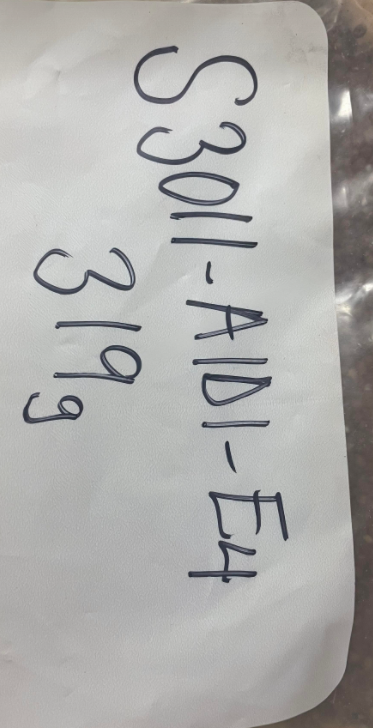 S3011-A1D1-E4
319g